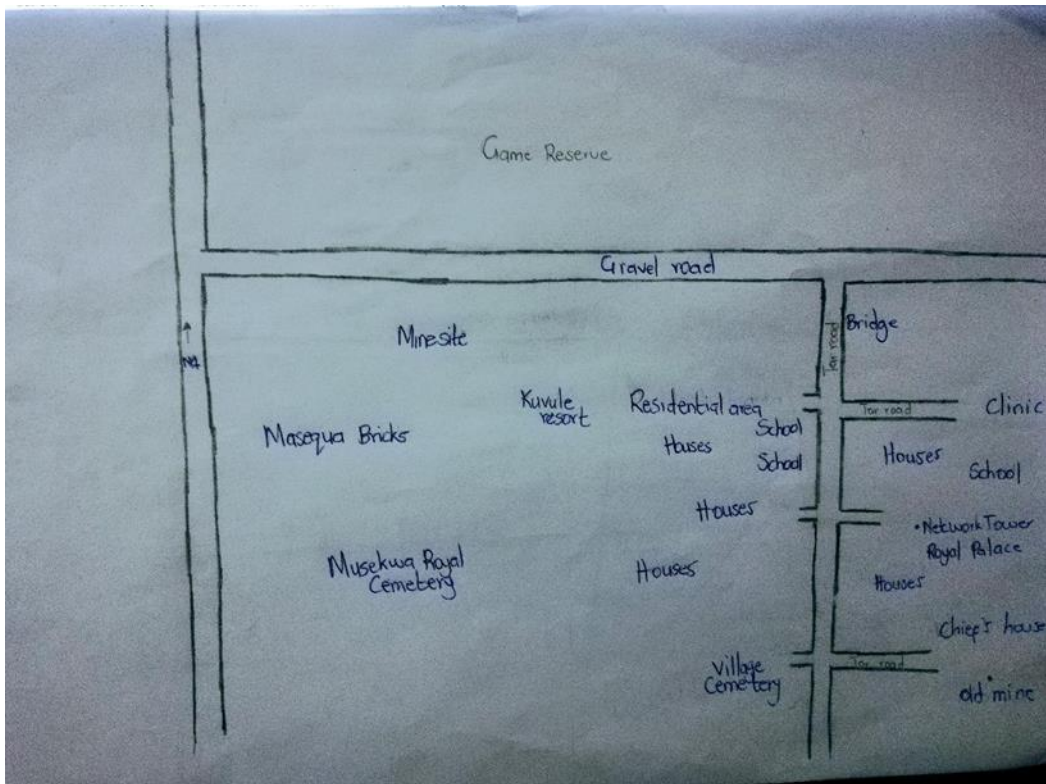 Game Reserve
Gravel road
Bridge
Tar road
Mine site
Kuvule
resort
Residential area
Tar road
Clinic
School
Masequa Bricks
Houses
School
Houses
School
Houses
Network Tower
Royal Palace
Musekwa Royal
Cemetery
Houses
Houses
Chief's house
Village
Cemetery
Tar road
old mine